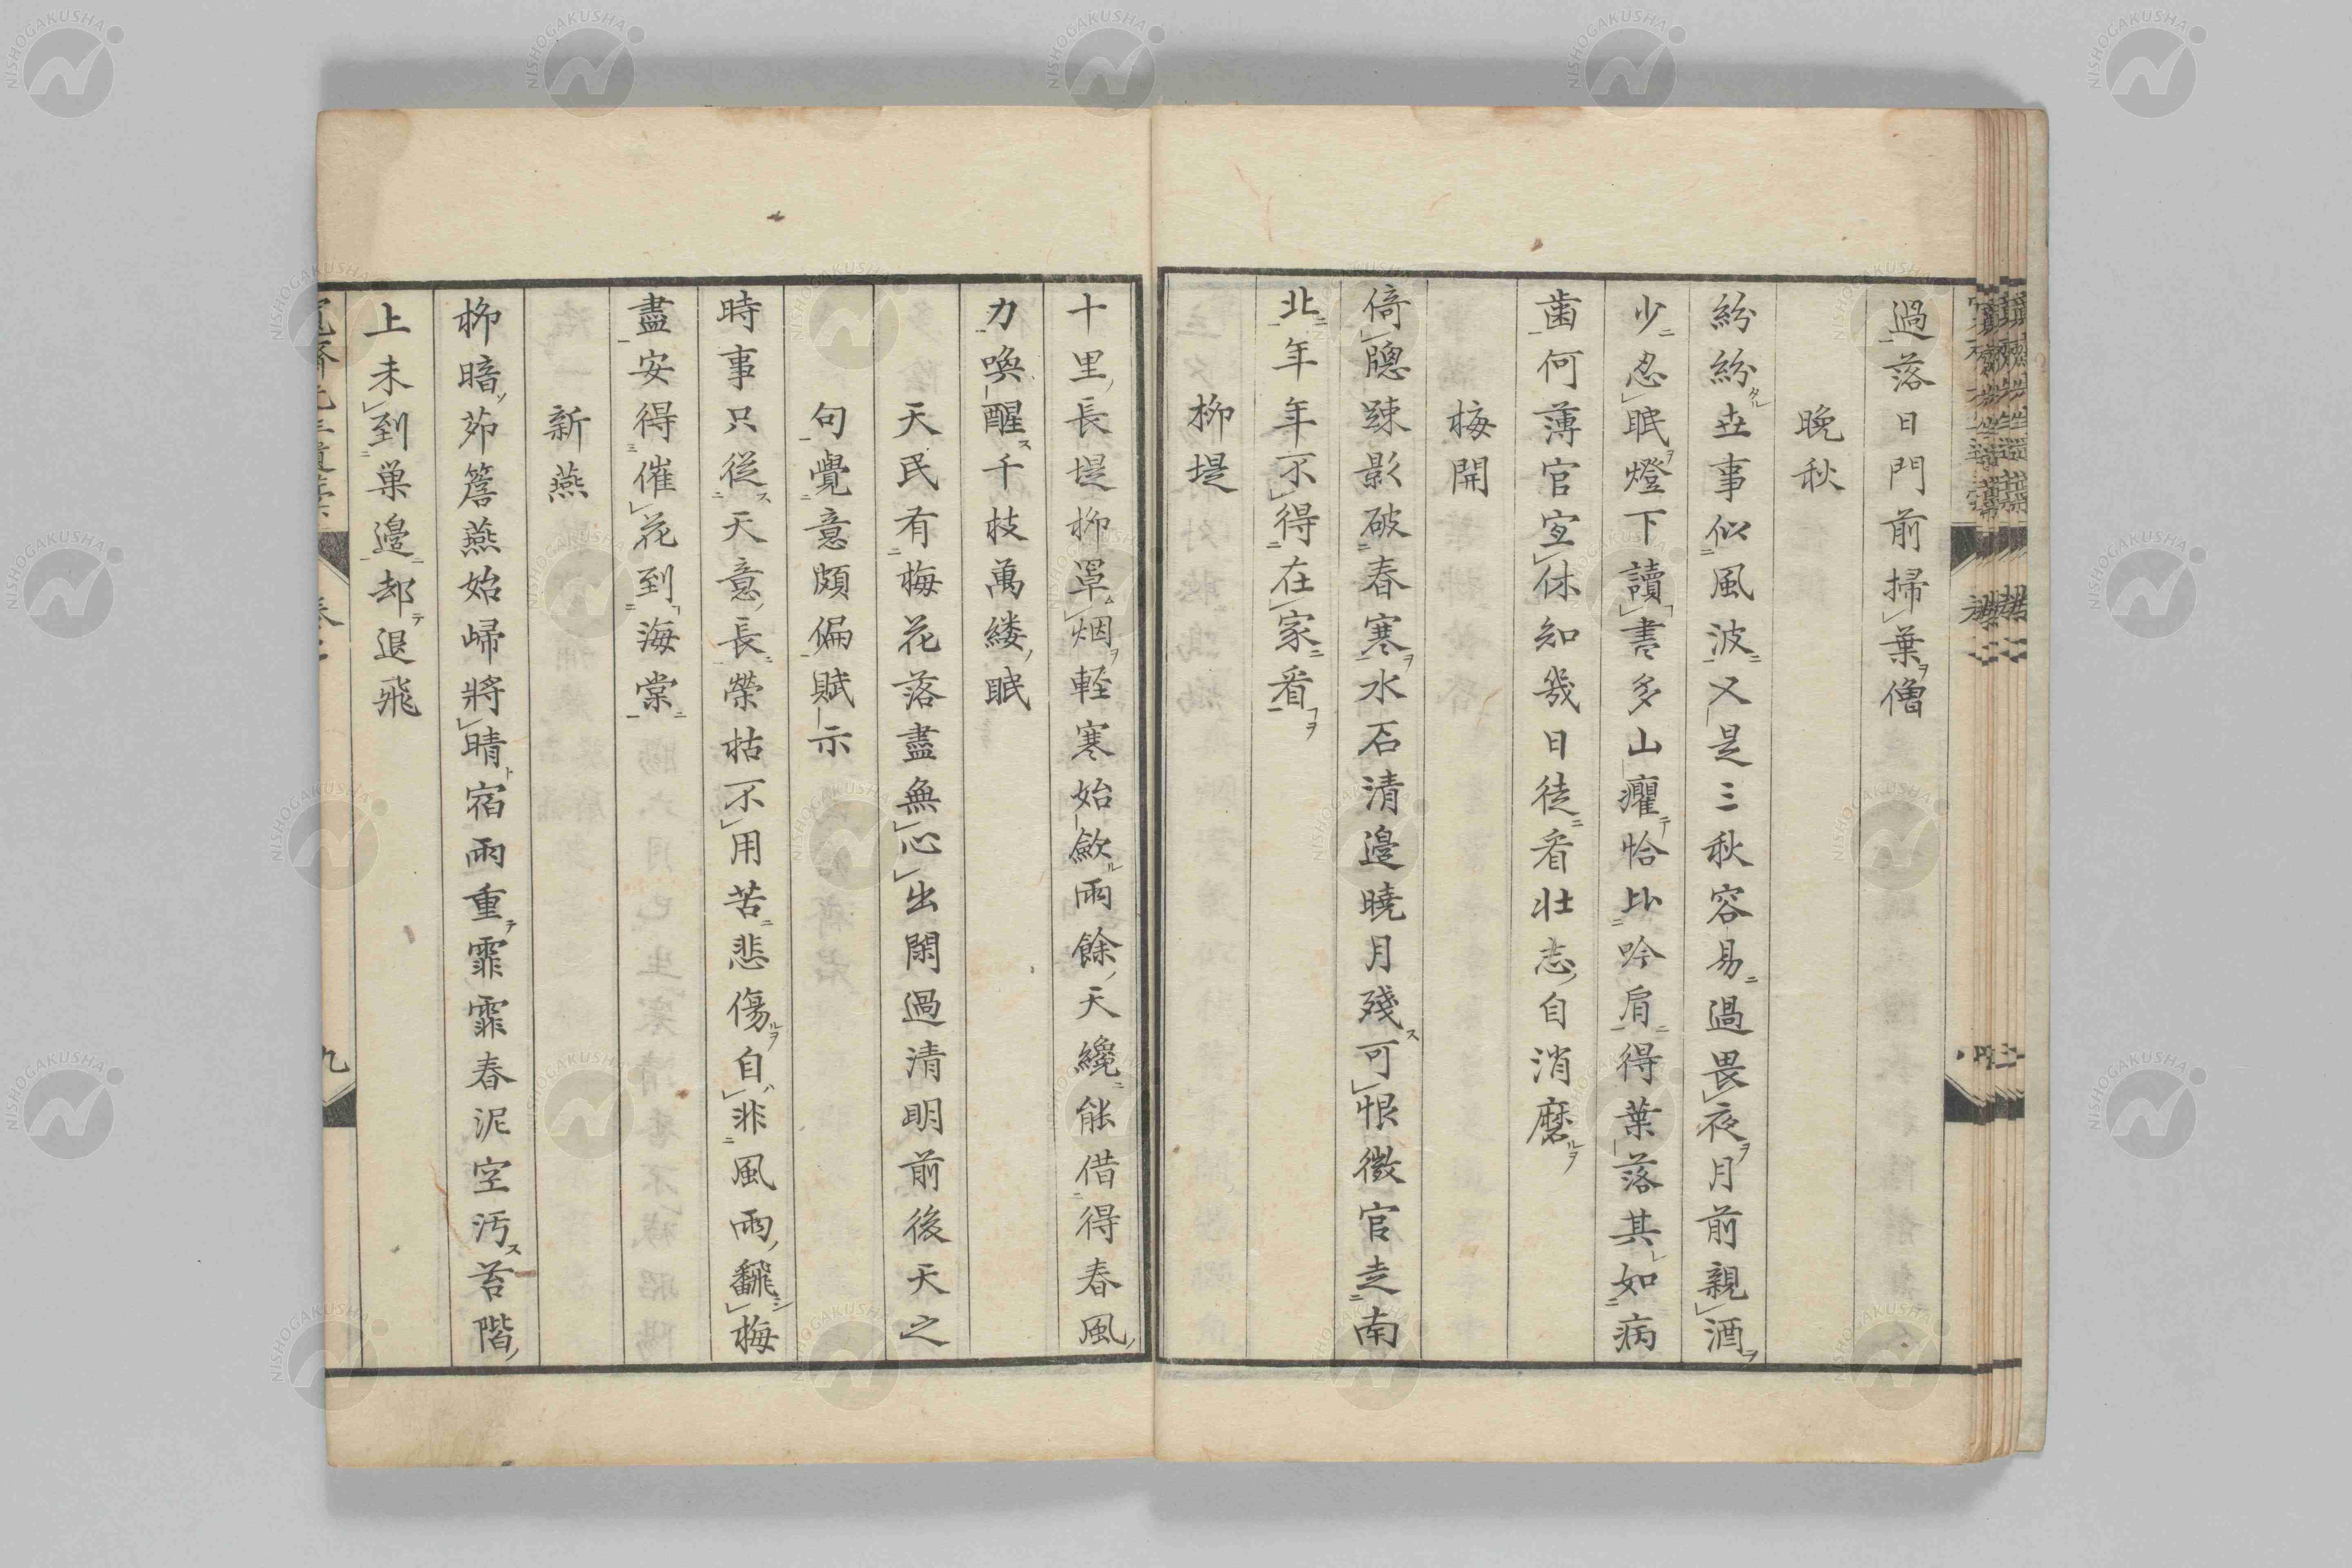 過落日門前掃葉僧
晩秋
紛紛世事似風波又是三秋容易過畏夜月前親酒
少忍眠燈下讀書多山癯恰比吟肩得葉落其如病
齒何薄官宜休知幾日徒看壮志自消磨
梅開
倚牕踈影破春寒水石清邉曉月殘可恨微官走南
北年年不得在家看
柳堤
十里長堤柳罩烟輕寒始歛雨餘天纔能借得春風
力喚醒千枝萬縷眠
天民有梅花落盡無心出閑過清明前後天之
句覺意頗偏賦示
時事只從天意長榮枯不用苦悲傷自非風雨飜梅
盡安得催花到海棠
新燕
柳暗茆簷燕始歸將晴宿雨重霏霏春泥空汚苔階
上未到巣邉却退飛
九
NISHOGAKUSHA